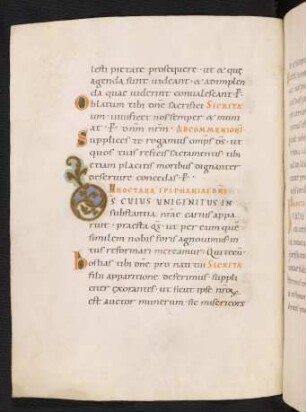 lesti pietate prosequere · ut & quę
agenda sunt uideant · & adimplen
da quae uiderint conualescant · P.
Oblatum tibi dne sacrificium SECRETA
um · uiuificet nos semper & muni
at · P dnm nrm · AD COMMUNION
Supplices te rogamus omps ds · ut
quos tuis reficis sacramentis · tibi
etiam placitis moribus dignanter
deseruire concedas · P ·
IN OCTABA EPIPHANIAE DNI ·
DS CUIUS UNIGENITUS IN
substantia nrae carnis appa
ruit · praesta qs · ut per eum que
similem nobis foris agnouimus in
tus reformari mereamur · Qui tecu
Hostias tibi dne pro nati tui SECRETA
filii apparitione deferimus suppli
citer exorantes · ut sicut ipse nroꝝ
est auctor munerum · sic misericors